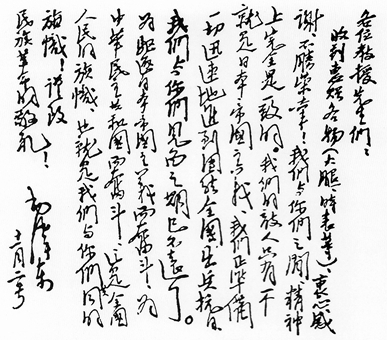 各位教授先生們：
收到惠贈各物(火腿、時表等)，衷心感
謝，不勝榮幸！我們與你們之間，精神
上完全是一致的。我們的敵人只有一个
就是日本帝國主義，我們正準備
一切，迅速地進到團結全國出兵抗日
我們與你們見面之期已不遠了。
為驅逐日本帝國主義而奮斗！為
中華民主共和國而奮斗，這是全國
人民的旗幟，也就是我們與你們共同的
旗幟！謹致
民族革命的敬禮！
毛澤東
十一月二号